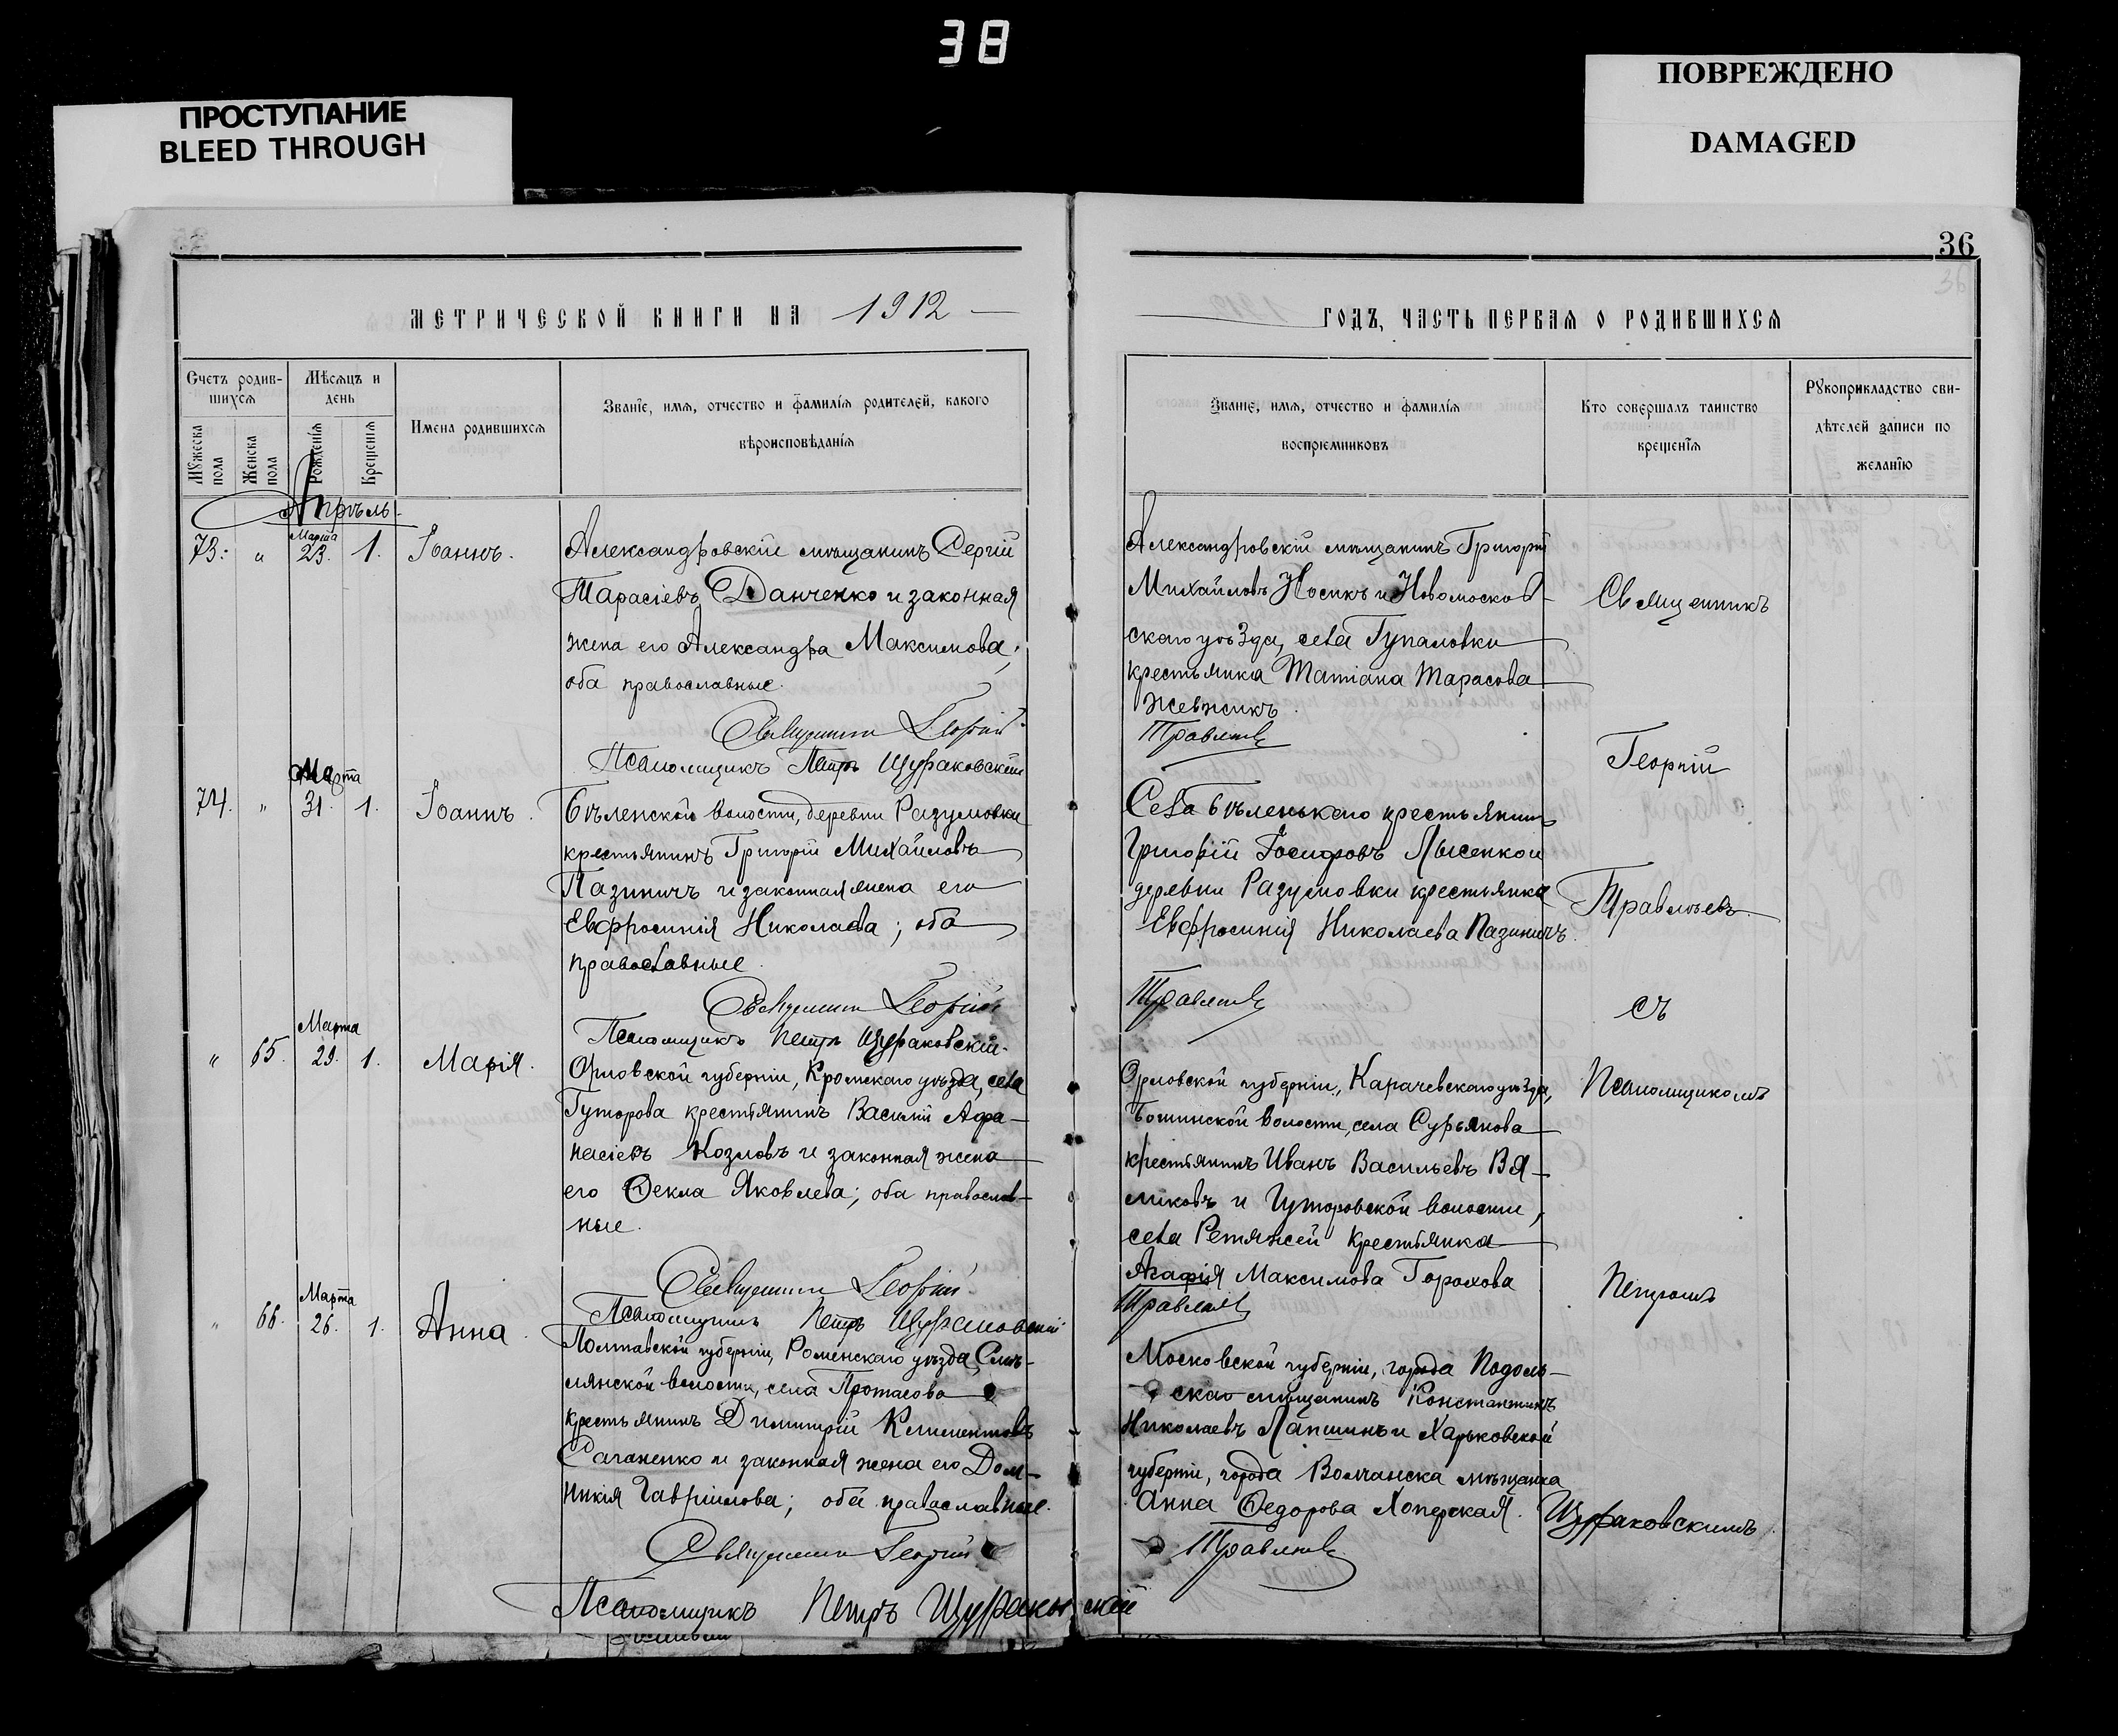 38
ПРОСТУПАНИЕ
BLEED THROUGH
ПОВРЕЖДЕНО
DAMAGED
36
МЕТРИЧЕСКОЙ КНИГИ НА 1912
ГОДЪ, ЧАСТЬ ПЕРВАЯ О РОДИВШИХСЯ
Счетъ родив-
шихся
Мужеска пола
Женска пола
Мѣсяцъ и
день
Рожденія
Крещенія
Имена родившихся
Званіе, имя, отчество и фамилія родителей, какого
вѣроисповѣданія
Званіе, имя, отчество и фамилія
воспріемниковъ
Кто совершалъ таинство
крещенія
Рукоприкладство сви-
дѣтелей записи по
желанію
Апрѣль
73. " Марта 23. 1. Іоаннъ.
Александровскій мѣщанинъ Сергій
Тарасіевъ Данченко и законная
жена его Александра Максимова;
оба православные.
Священникъ Георгій
Псаломщикъ Петръ Щураковскій
74. " Марта 31. 1. Іоаннъ.
Бѣленской волости, деревни Разумовки
крестьянинъ Григорій Михайловъ
Пазиничъ и законная жена его
Евфросинія Николаева; оба
православные.
Священникъ Георгій
Псаломщикъ Петръ Щураковскій.
" 65. Марта 29. 1. Марія.
Орловской губерніи, Кромскаго уѣзда, села
Гуторова крестьянинъ Василій Афа-
насіевъ Козловъ и законная жена
его Ѳекла Яковлева; оба православ-
ные.
Священникъ Георгій
Псаломщикъ Петръ Щураковскій
" 66. Марта 26. 1. Анна.
Полтавской губерніи, Роменскаго уѣзда, Смѣ-
лянской волости, села Протасова
крестьянинъ Димитрій Климентовъ
и законная жена его Дом-
никія Гавріилова; оба православные.
Священникъ Георгій
Псаломщикъ Петръ Щураковскій
Александровскій мѣщанинъ Григорій
Михайловъ Носикъ и Новомосков-
скаго уѣзда, села Гупаловки
крестьянка Татіана Тарасова
Жевжикъ.
Травлѣевъ
Села Бѣленькаго крестьянинъ
Григорій Іосифовъ Лысенко и
деревни Разумовки крестьянка
Евфросинія Николаева Пазиничъ.
Травлѣевъ
Орловской губерніи, Карачевскаго уѣзда,
волости, села Сурьянова
крестьянинъ Иванъ Васильевъ Вя-
ликовъ и Гуторовской волости,
села Ретяжей крестьянка
Агафія Максимова Горохова
Травлѣевъ
Московской губерніи, города Подоль-
скаго мѣщанинъ Константинъ
Николаевъ Лапшинъ и Харьковской
губерніи, города Волчанска мѣщанка
Анна Ѳедорова Хоперская.
Травлѣевъ
Священникъ
Георгій
Травлѣевъ
съ
Псаломщикомъ
Петромъ
Щураковскимъ